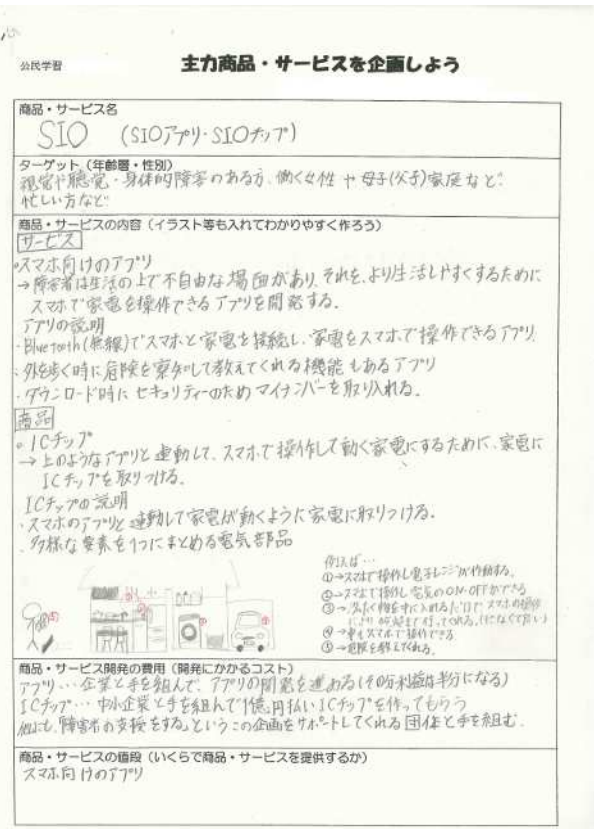 公民学習
主力商品・サービスを企画しよう
商品・サービス名
SIO (SIOアプリ・SIOチップ)
ターゲット(年齢署・性別)
視覚や聴覚・身体的障害のある方、働く女性や母子(父子)家庭など
忙しい方など
商品・サービスの内容(イラスト等も入れてわかりやすく作ろう)
サービス
・スマホ向けのアプリ
→障害者は生活の上で不自由な場面があり、それを、より生活しやすくするために
スマホで家電を操作できるアプリを開発する。
アプリの説明
・Bluetooth(無線)でスマホと家電を接続し、家電をスマホで操作できるアプリ
・外を歩く時に危険を察知して教えてくれる機能もあるアプリ
・ダウンロード時にセキュリティーのためマイナンバーを取り入れる。
商品
・ICチップ
→上のようなアプリと連動して、スマホで操作して動く家電にするために、家電に
ICチップを取りつける。
ICチップの説明
・スマホのアプリと連動して家電が動くように家電に取りつける。
・多様な要素を1つにまとめる電気部品
例えば…
①→スマホで操作し電子レンジが作動する。
②→スマホで操作し電気のON・OFFができる
③→ 中に入れるだけでスマホの操作
④→車もスマホで操作できる
⑤→危険を教えてくれる。
商品・サービス開発の費用(開発にかかるコスト)
アプリ…企業と手を組んで、アプリの開発を進める(その分利益は半分になる)
ICチップ…中小企業と手を組んで1億円払いICチップを作ってもらう
他にも、「障害者の支援をする」というこの企画をサポートしてくれる団体と手を組む。
商品・サービスの値段(いくらで商品・サービスを提供するか)
スマホ向けのアプリ